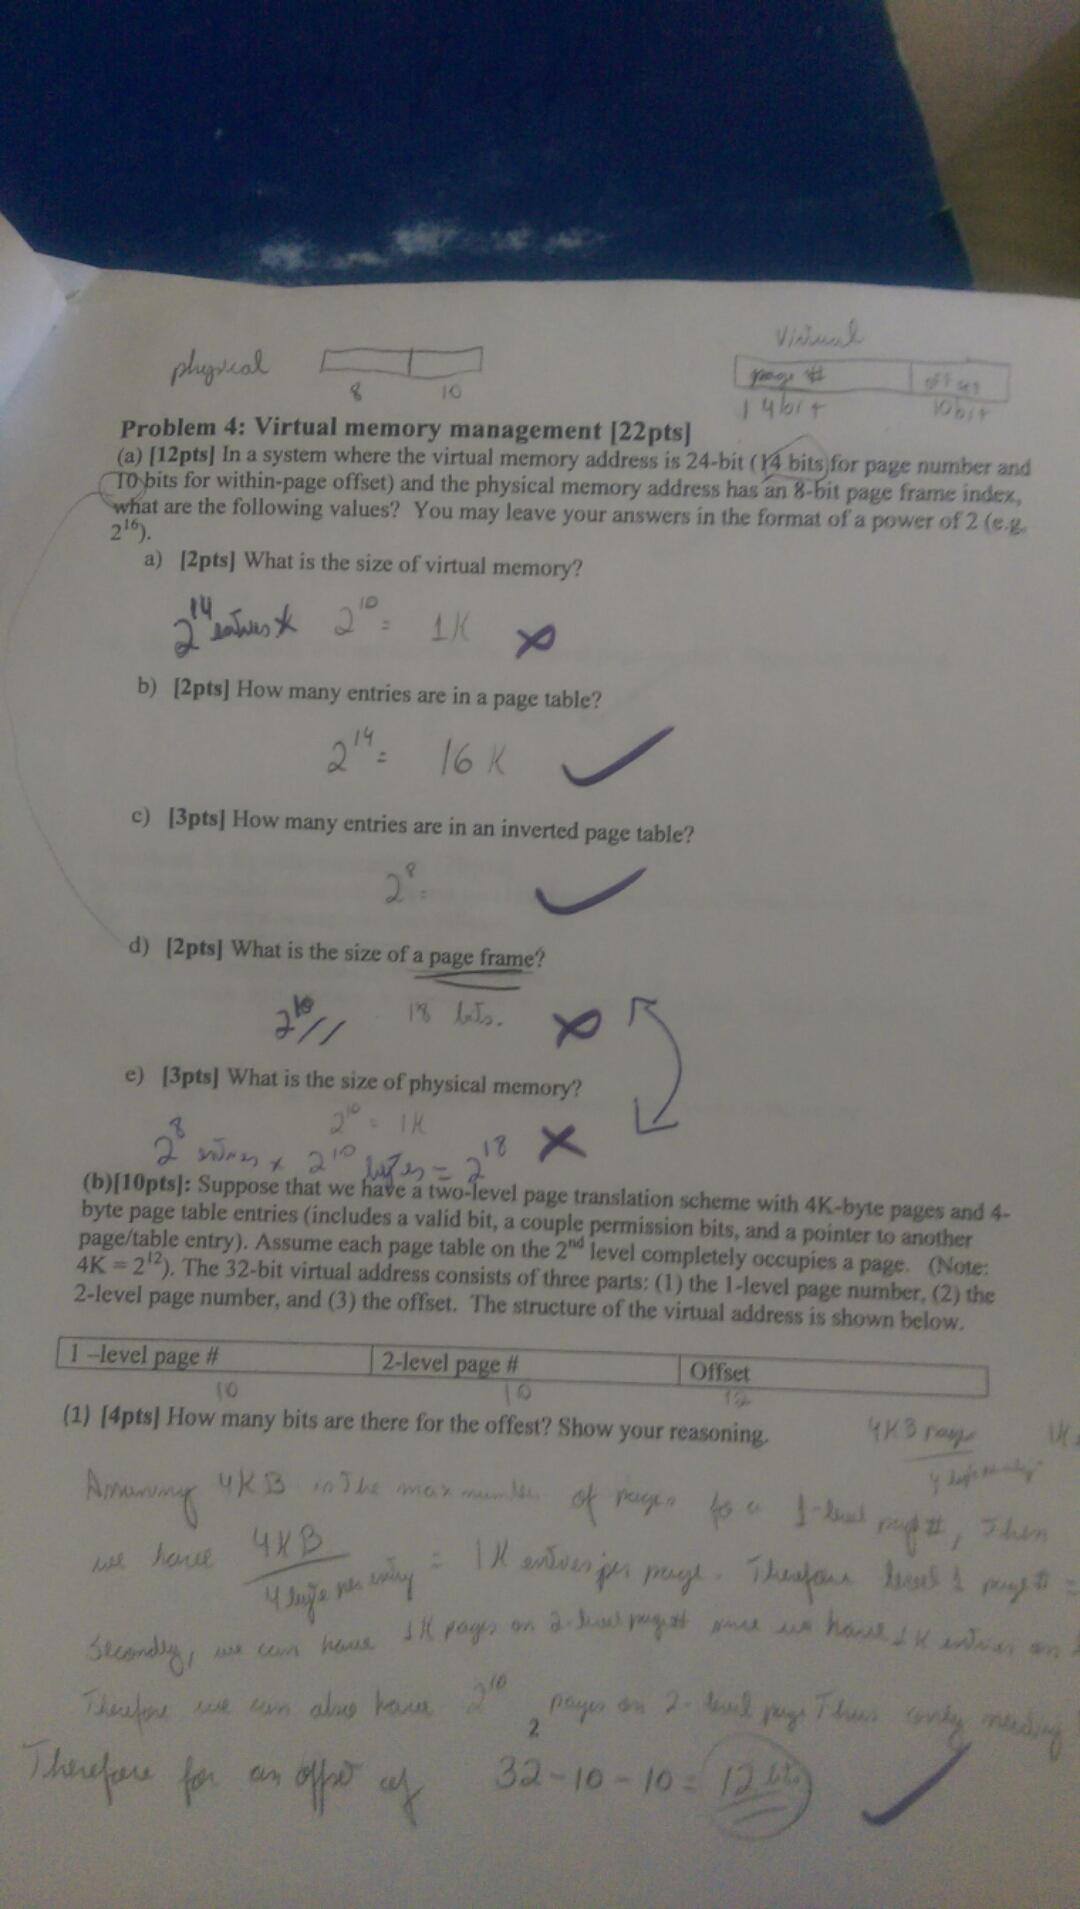 Virtual
physical
page #
offset
8 10
14 bit 10 bit
Problem 4: Virtual memory management [22pts]
(a) [12pts] In a system where the virtual memory address is 24-bit (14 bits for page number and
10 bits for within-page offset) and the physical memory address has an 8-bit page frame index,
what are the following values? You may leave your answers in the format of a power of 2 (e.g.
2^16).
a) [2pts] What is the size of virtual memory?
2^14 entries * 2^10 = 1K
b) [2pts] How many entries are in a page table?
2^14 = 16 K
c) [3pts] How many entries are in an inverted page table?
2^8 =
d) [2pts] What is the size of a page frame?
2^10 18 bits.
e) [3pts] What is the size of physical memory?
2^10 = 1K
2^8 entries x 2^10 bytes = 2^18
(b)[10pts]: Suppose that we have a two-level page translation scheme with 4K-byte pages and 4-
byte page table entries (includes a valid bit, a couple permission bits, and a pointer to another
page/table entry). Assume each page table on the 2nd level completely occupies a page. (Note:
4K = 2^12). The 32-bit virtual address consists of three parts: (1) the 1-level page number, (2) the
2-level page number, and (3) the offset. The structure of the virtual address is shown below.
1 –level page # 2-level page # Offset
10 10 12
(1) [4pts] How many bits are there for the offest? Show your reasoning.
4KB page
Assuming 4KB is the max number of pages for a 1-level page #, then
we have 4KB = 1K entries per page. Therefore level 1 page # =
4 byte per entry
Secondly, we can have 1K pages on 2-level page # since we have 1K entries on
Therefore we can also have 2^10 pages on 2-level page Thus only needing
2
Therefore for an offset of 32-10-10 = 12 bits